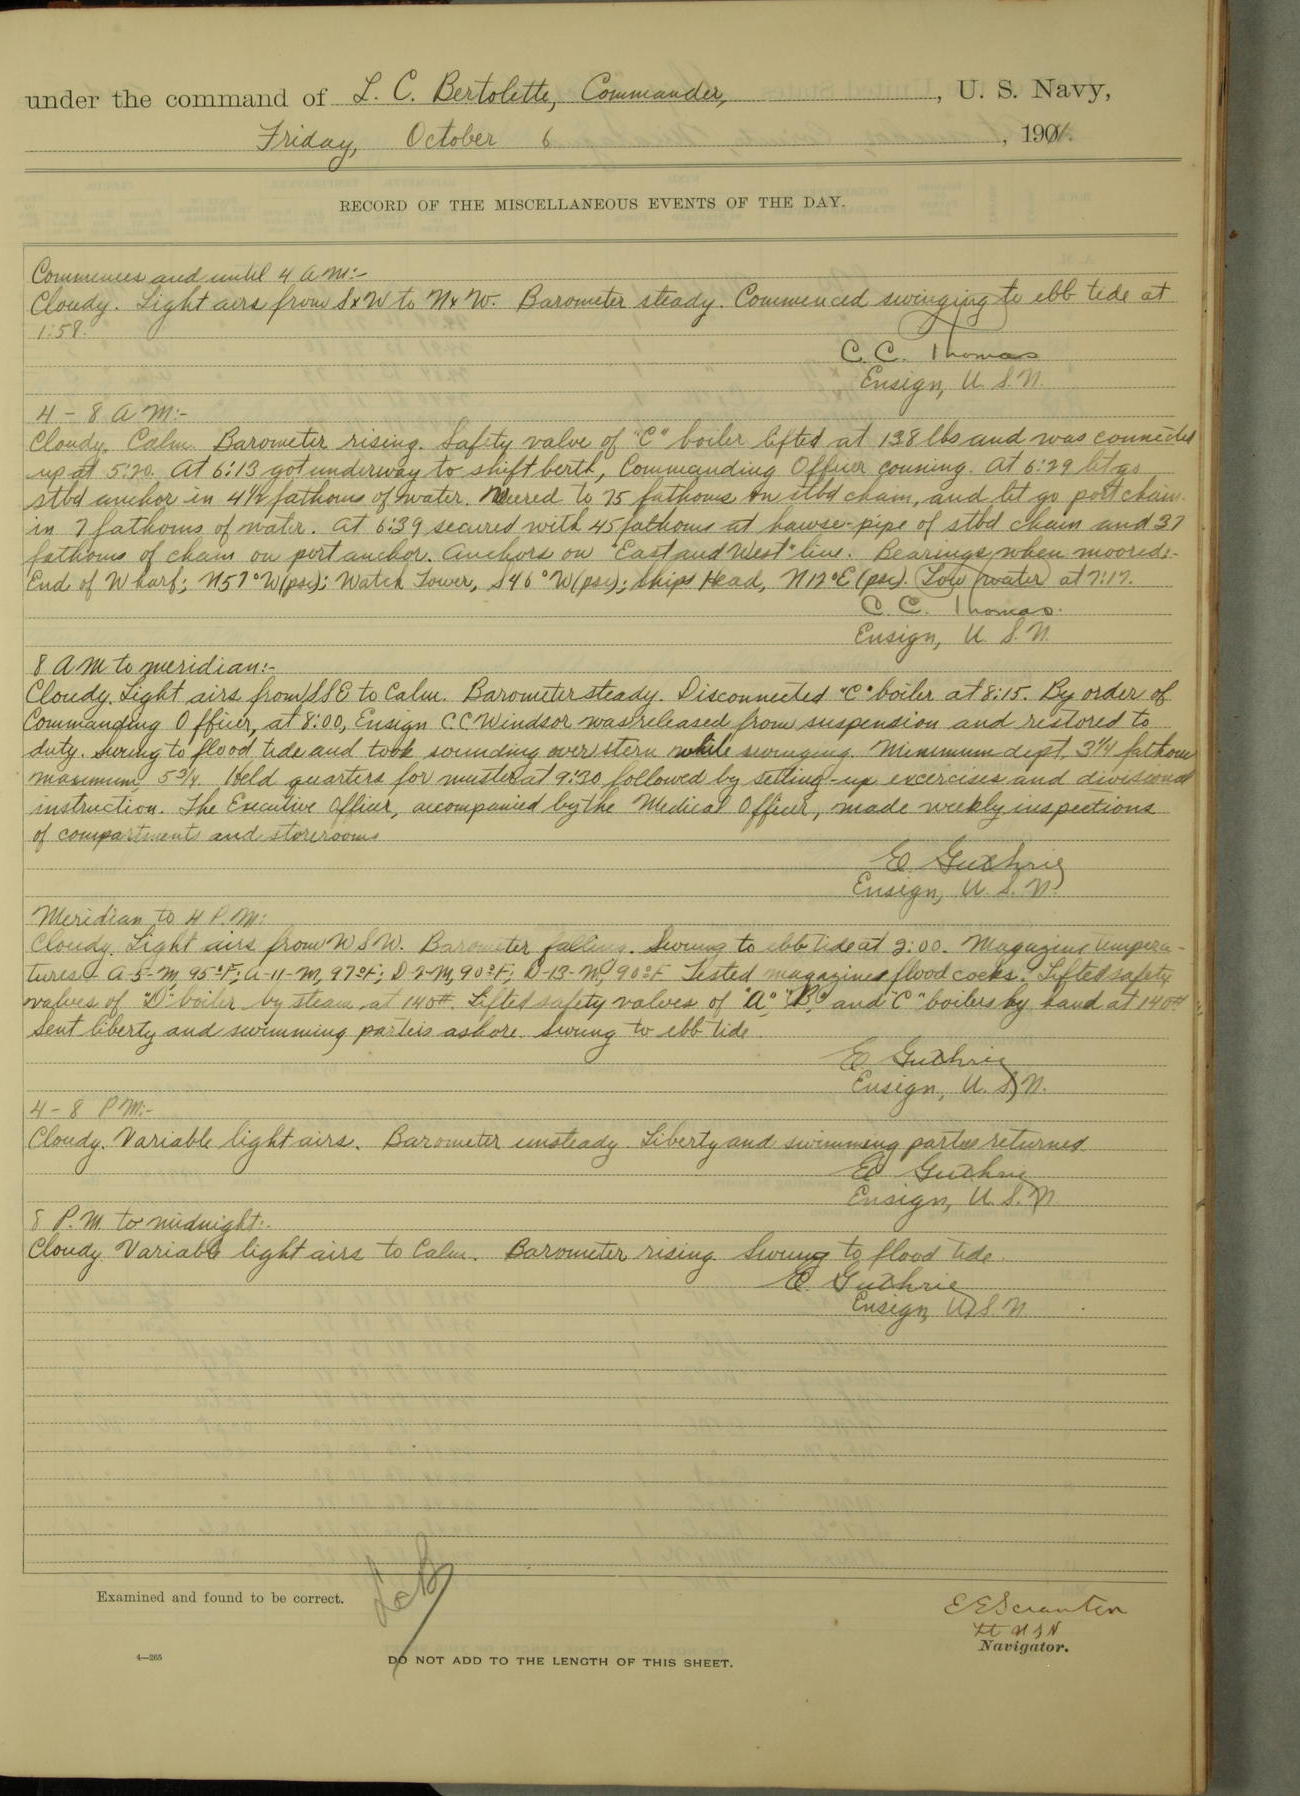 under the command of L. C. Bertolette, Commander, , U. S. Navy,
Friday, October 6 , 191 .
RECORD OF THE MISCELLANEOUS EVENTS OF THE DAY.
Commences and until 4 A M:-
Cloudy. Light airs from SxW to NxW. Barometer steady. Commenced swinging to ebb tide at
1:58.
C. C. Thomas
Ensign, U. S. N.
4 - 8 A M:-
Cloudy. Calm. Barometer rising. Safety valve of "C" boiler lifted at 138 lbs and was connected
up at 5:20. At 6:13 got underway to shift berth, Commanding Officer conning. At 6:29 let go
stbd anchor in 4½ fathoms of water. Veered to 75 fathoms on stbd chain, and let go port chain
in 7 fathoms of water. At 6:39 secured with 45 fathoms at hawse-pipe of stbd chain and 37
fathoms of chain on port anchor. Anchors on "East and West" line. Bearings when moored:-
End of Wharf; N57°W(psc); Watch Tower, S46°W(psc); Ships Head, N12°E(psc). Low water at 7:17.
C. C. Thomas.
Ensign, U. S. N.
8 A M to meridian:-
Cloudy. Light airs from SSE to Calm. Barometer steady. Disconnected "C" boiler at 8:15. By order of
Commanding Officer, at 8:00, Ensign C.C Windsor was released from suspension and restored to
duty. Swung to flood tide and took sounding over stern while swinging. Minimum dept. 3¼ fathoms
maximum, 5¾. Held quarters for muster at 9:30 followed by setting-up excercises and divisional
instruction. The Executive Officer, accompanied by the Medical Officer, made weekly inspections
of compartments and storerooms
E. Guthrie
Ensign, U. S. N.
Meridian to 4 P.M:
Cloudy. Light airs from WSW. Barometer falling. Swung to ebb tide at 2:00. Magazine tempera-
tures:- A-5-M, 95°F; A-11-M, 97°F; D-2-M, 90°F; D-13-M, 90°F. Tested magazines flood cocks. Lifted safety
valves of "D" boiler by steam at 140#. Lifted safety valves of "A", "B", and "C" boilers by hand at 140#
Sent liberty and swimming parties ashore. Swung to ebb tide.
E Guthrie
Ensign, U. S. N.
4 - 8 P M:-
Cloudy. Variable light airs. Barometer unsteady. Liberty and swimming parties returned
E Guthrie
Ensign, U. S. N
8 P. M. to midnight:-
Cloudy. Variable light airs to Calm. Barometer rising. Swung to flood tide.
E. Guthrie
Ensign, U. S. N
Examined and found to be correct. LCB
E E Scranton
Lt U S N
Navigator.
4—265
DO NOT ADD TO THE LENGTH OF THIS SHEET.